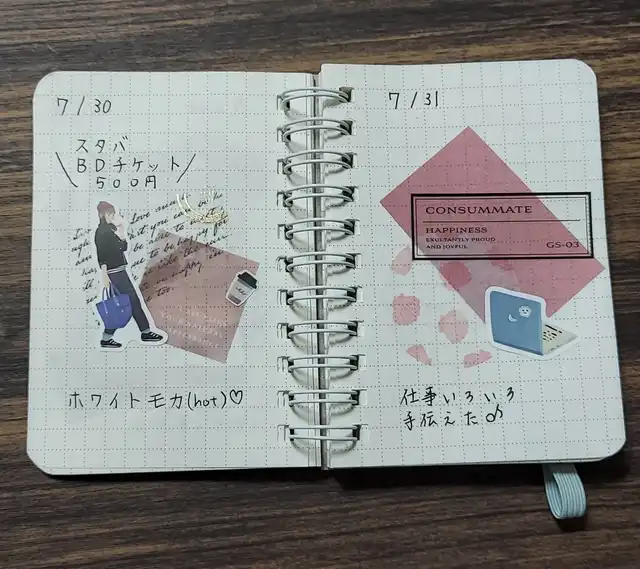 7/30
スタバ
\BDチケット/
500円
ホワイトモカ(hot)♡
7/31
CONSUMMATE
HAPPINESS
EXULTANTLY PROUD
AND JOYFUL
GS-03
仕事いろいろ
手伝えた